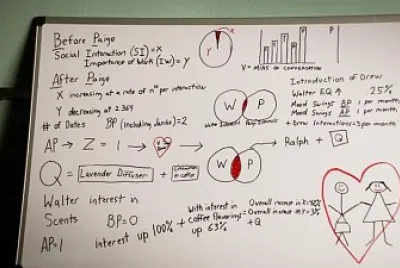 Before Paige
Social Interaction (SI)=X
Importance of Work (IW)=Y
After Paige
X increasing at a rate of n¹⁰ per interaction
Y decreasing at 2.364
# of Dates BP (including Janis)=2
AP → Z = 1 →
Q = Lavender Diffuser + Cinnamon in coffee
Walter interest in
Scents BP=0
AP=1 interest up 100% +
With interest in
coffee flavorings
up 63%
= Overall increase in X
Overall increase in Y
+Q
Y
X
V = Mins of Conversation
P
W P
W P
Introduction of Drew
Walter EQ ↑ 25%
Mood Swings BP 1 per month
Mood Swings AP 1 per month
+ Drew Interactions=3 per month
Ralph + Q